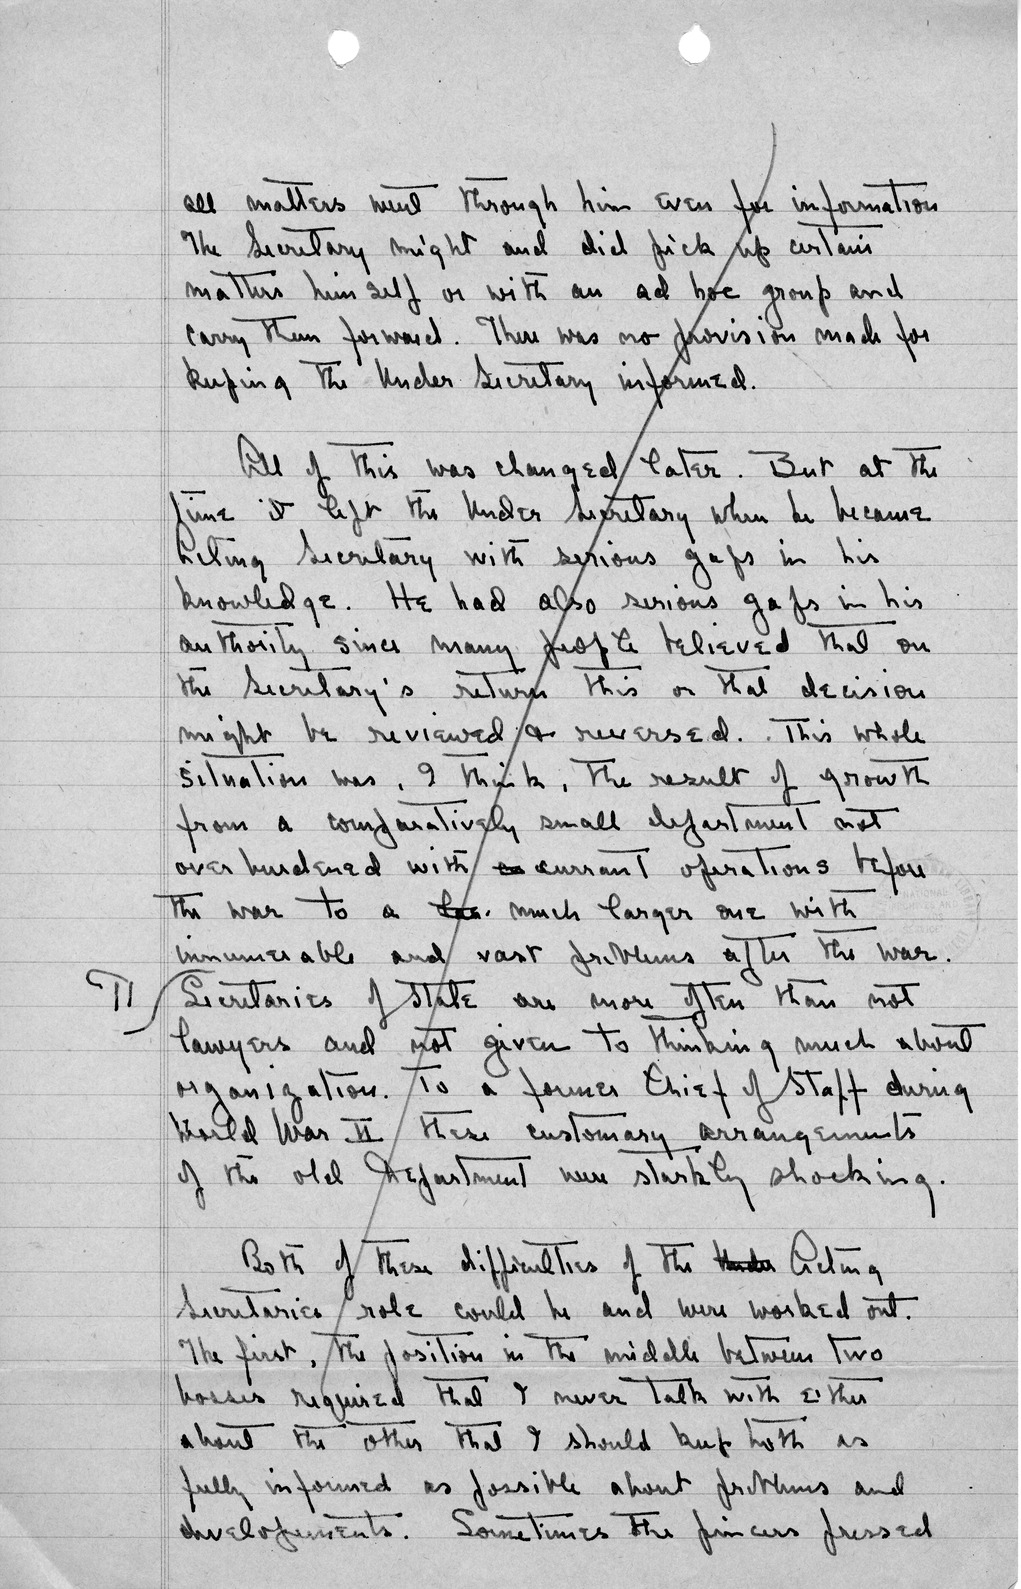 all matters went through him even for information
The Secretary might and did pick up certain
matters himself or with an ad hoc group and
carry them forward. There was no provision made for
keeping the Under Secretary informed.
All of this was changed later. But at the
time it left the Under Secretary when he became
Acting Secretary with serious gaps in his
knowledge. He had also serious gaps in his
authority since many people believed that on
the Secretary's return this or that decision
might be reviewed & reversed. This whole
situation was, I think, the result of growth
from a comparatively small department not
overburdened with currant operations before
the war to a much larger one with
innumerable and vast problems after the war.
¶ Secretaries of State are more often than not
lawyers and not given to thinking much about
organization. To a former Chief of Staff during
World War II these customary arrangements
of the old Department were starkly shocking.
Both of these difficulties of the Under Acting
Secretaries role could be and were worked out.
The first, the position in the middle between two
bosses required that I never talk with either
about the other that I should keep both as
fully informed as possible about problems and
developements. Sometimes the pincers pressed